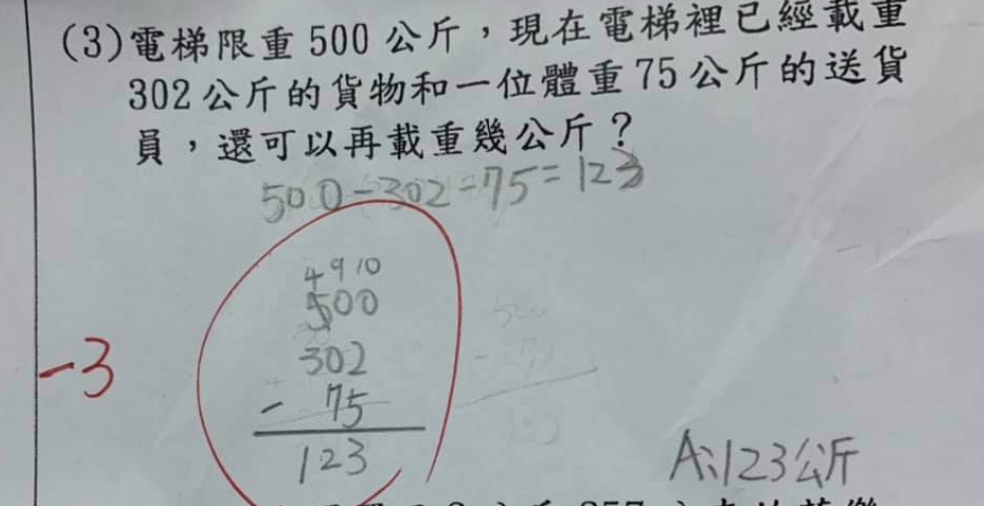 (3)電梯限重500公斤，現在電梯裡已經載重
302公斤的貨物和一位體重75公斤的送貨
員，還可以再載重幾公斤？
500-302-75=123
4 9 10
500
302
- 75
123
-3
A:123公斤